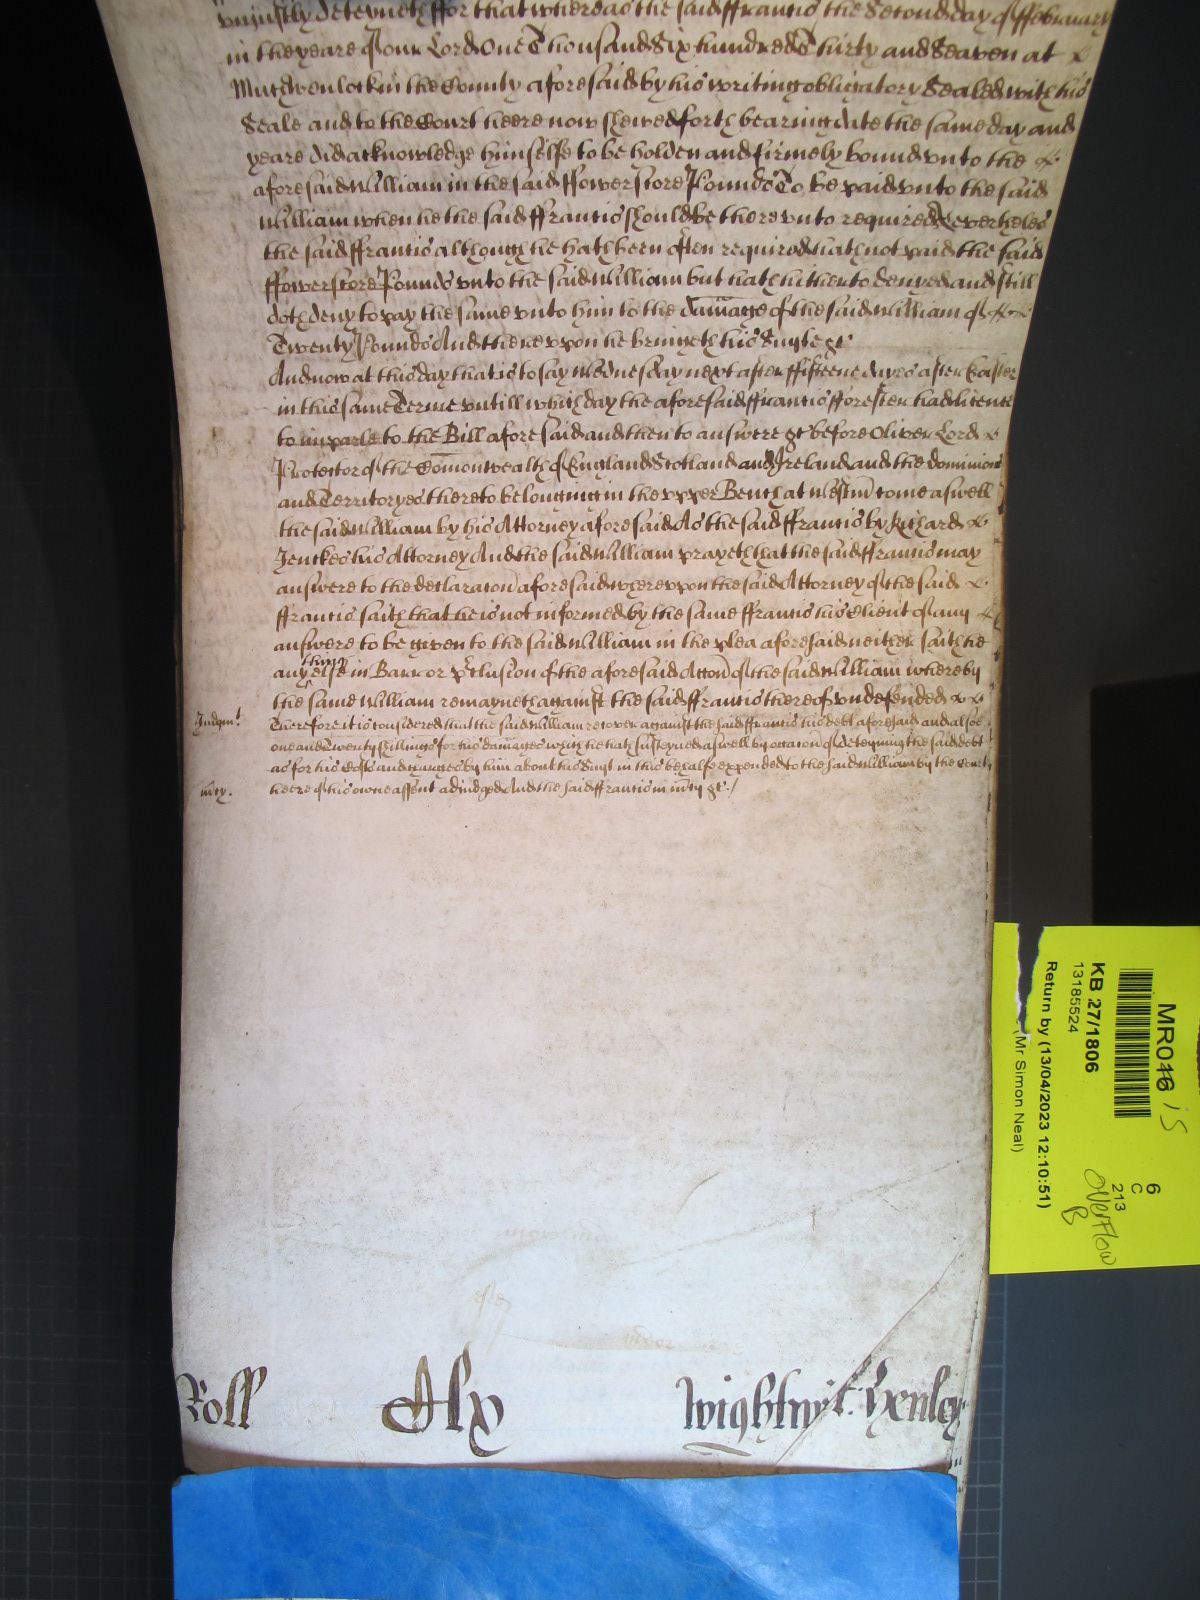 vniustly deteyneth ffor that whereas the said ffrancis the Second day of ffebruary
in the yeare of our Lord One Thousand Six hundred Thirty and Seaven at
Much Wenlock in the County aforesaid by his writing obligatory Sealed with his
Seale and to the Court heere now shewed forth bearing date the same day and
yeare did acknowledge himselfe to be holden and firmely bound vnto the
aforesaid William in the said ffower score Pounds To be paid vnto the said
William when he the said ffrancis should be therevnto required Neverthelesse
the said ffrancis although he hath been often required hath not paid the said
ffower score Pounds vnto the said William but hath hitherto denyed and still
doth deny to pay the same vnto him to the damage of the said William of
Twenty Pounds And therevpon he bringeth his Suyte &c
And now at this day that is to say Wednesday next after ffifteene dayes after Easter
in this same Terme vntill which day the aforesaid ffrancis fforester had licence
to imparle to the Bill aforesaid and then to answere &c before Oliver Lord
Protector of the Comonwealth of England Scotland and Ireland and the dominions
and Territoryes thereto belonging in the vpper Bench at Westm come aswell
the said William by his Attorney aforesaid As the said ffrancis by Richard
Jenckes his Attorney And the said William prayeth that the said ffrancis may
answere to the declaracon aforesaid wherevpon the said Attorney of the said
ffrancis saith that he is not informed by the same ffrancis his Client of any
answere to be given to the said William in the plea aforesaid neither saith he
any thing else in Barr or Preclusion of the aforesaid Accon of the said William whereby
the same William remayneth against the said ffrancis thereof vndefended
Judgmt Therefore it is considered that the said William recover against the said ffrancis his debt aforesaid and alsoe
one and Twenty Shillings for his damages which he hath susteyned aswell by occasion of deteyning the said debt
as for his Costs and charges by him about his Suyt in this behalfe expended to the said William by the Court
mcy. heere of his owne assent adiudged And the said ffrancis in mcy &c./
Roll
Wightwyk: Henley
MR046 15
KB 27/1806
13185524
Return by (13/04/2023 12:10:51)
(Mr Simon Neal)
6
C
213
Overflow
B